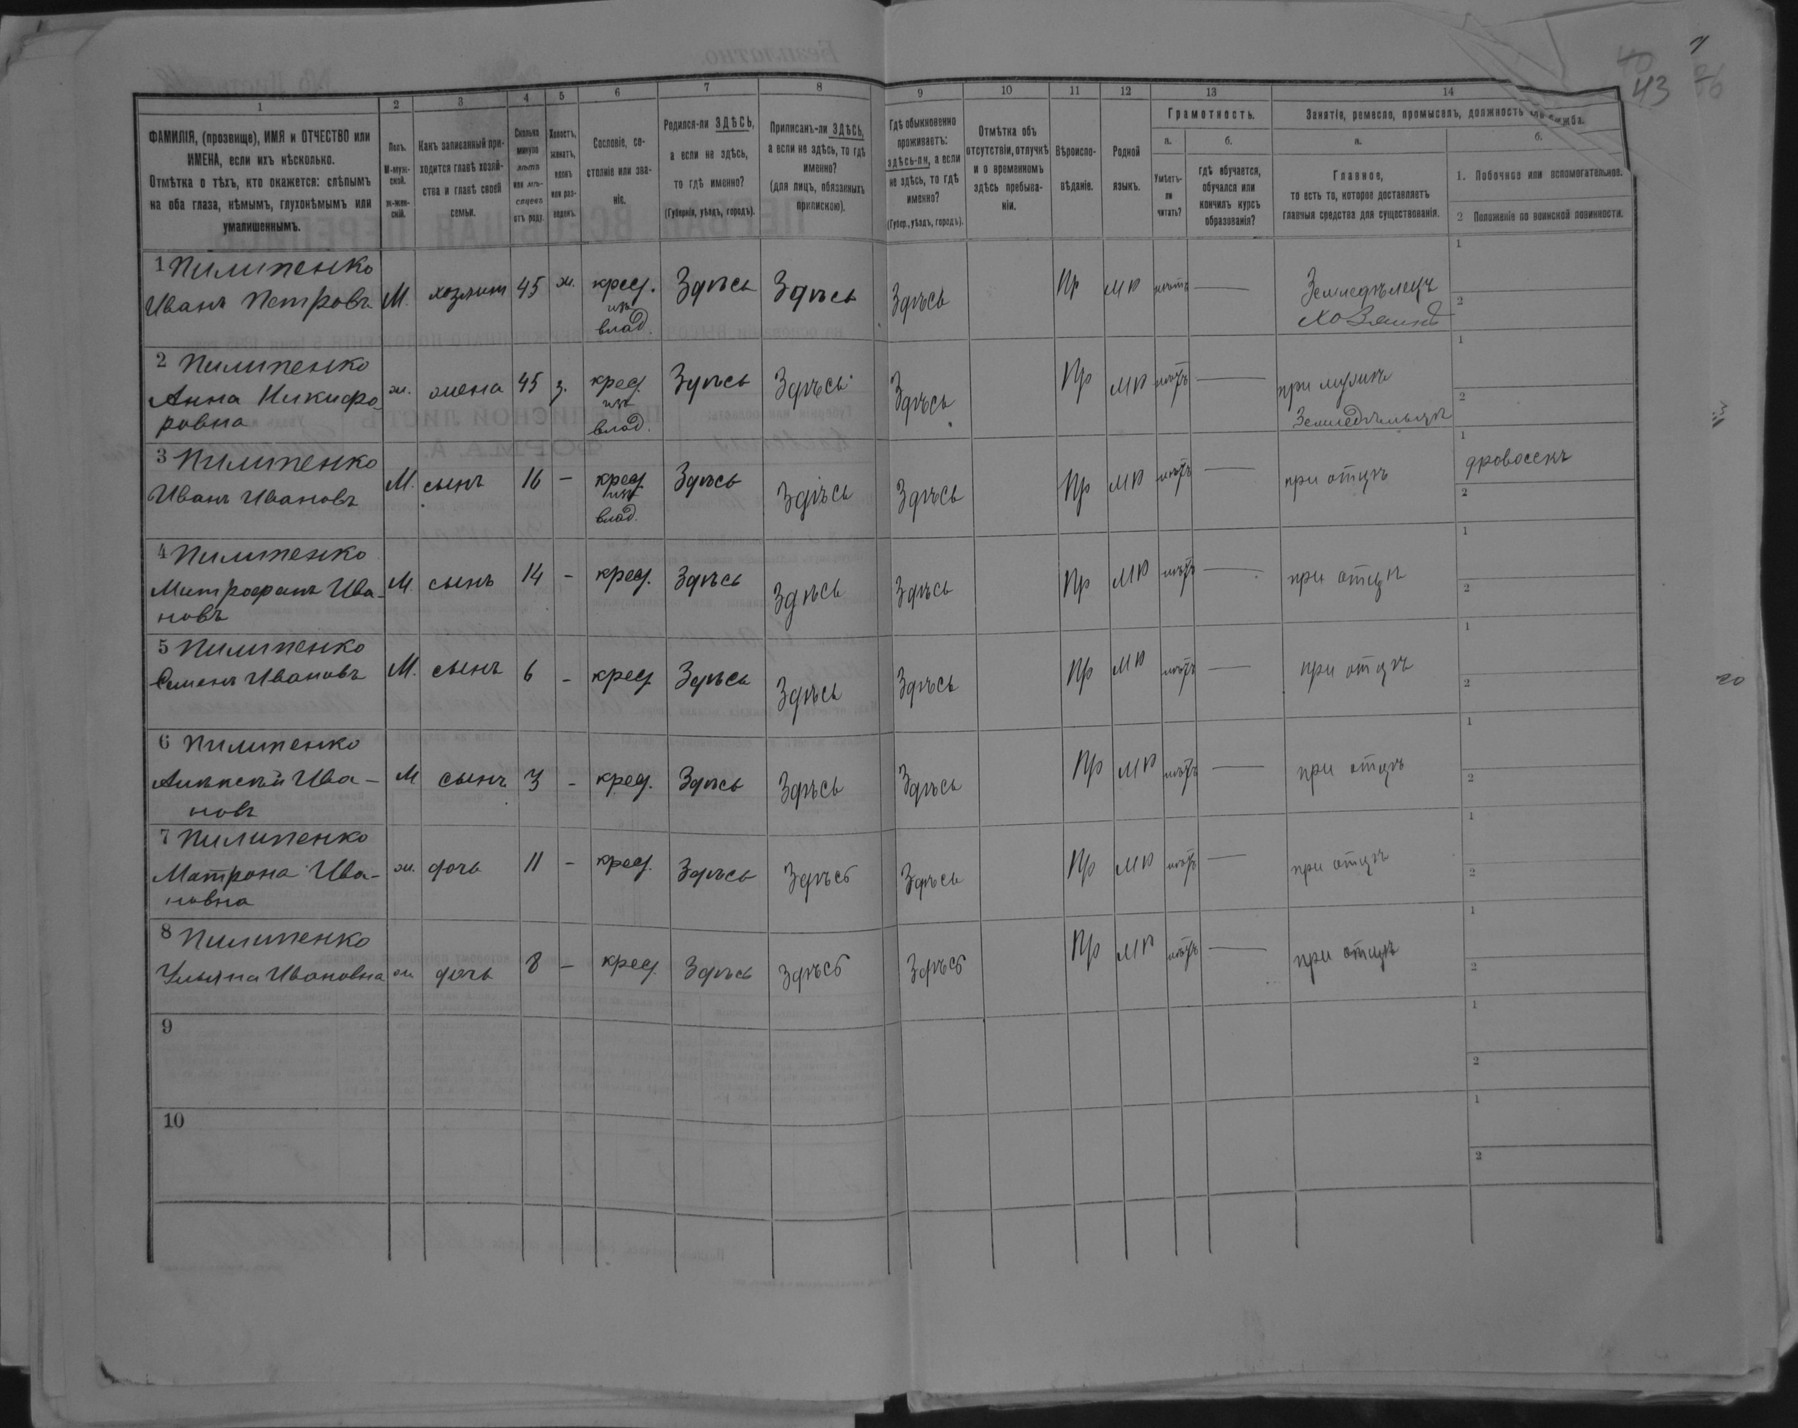 43
1
2
3
4
5
6
7
8
9
10
11
12
13
14
ФАМИЛІЯ, (прозвище), ИМЯ и ОТЧЕСТВО или
ИМЕНА, если ихъ нѣсколько.
Отмѣтка о тѣхъ, кто окажется: слѣпымъ
на оба глаза, нѣмымъ, глухонѣмымъ или
умалишеннымъ.
Полъ.
М-муж-
ской.
ж-жен-
скій.
Какъ записанный при-
ходится главѣ хозяй-
ства и главѣ своей
семьи.
Сколько
минуло
лѣтъ
или мѣ-
сяцевъ
отъ роду.
Холостъ,
женатъ,
вдовъ
или раз-
веденъ.
Сословіе, со-
стояніе или зва-
ніе.
Родился-ли ЗДѢСЬ,
а если не здѣсь,
то гдѣ именно?
(Губернія, уѣздъ, городъ).
Приписанъ-ли ЗДѢСЬ,
а если не здѣсь, то гдѣ
именно?
(для лицъ, обязанныхъ
припискою).
Гдѣ обыкновенно
проживаетъ:
здѣсь-ли, а если
не здѣсь, то гдѣ
именно?
(Губер., уѣздъ, городъ).
Отмѣтка объ
отсутствіи, отлучкѣ
и о временномъ
здѣсь пребыва-
ніи.
Вѣроиспо-
вѣданіе.
Родной
языкъ.
Грамотность.
а.
Умѣетъ-
ли
читать?
б.
гдѣ обучается,
обучался или
кончилъ курсъ
образованія?
Занятія, ремесло, промыселъ, должность или служба.
а.
Главное,
то есть то, которое доставляетъ
главныя средства для существованія.
б.
1. Побочное или вспомогательное.
2 Положеніе по воинской повинности.
1 Пилипенко
Иванъ Петровъ М. хозяинъ 45 ж. крест. Здѣсь Здѣсь Здѣсь Пр МР нѣтъ — Земледѣлецъ 1
изъ
влад. хозяинъ 2
2 Пилипенко
Анна Никифо- ж. жена 45 з. крест. Здѣсь Здѣсь Здѣсь Пр МР нѣтъ — при мужѣ 1
ровна изъ
влад. 2
3 Пилипенко
Иванъ Ивановъ М. сынъ 16 — крест. Здѣсь Здѣсь Здѣсь Пр МР нѣтъ — при отцѣ 1 дровосекъ
изъ
влад. 2
4 Пилипенко
Митрофанъ Ива- М. сынъ 14 — крест. Здѣсь Здѣсь Здѣсь Пр МР нѣтъ — при отцѣ 1
новъ 2
5 Пилипенко
Семенъ Ивановъ М. сынъ 6 — крест. Здѣсь Здѣсь Здѣсь Пр МР нѣтъ — при отцѣ 1
2
6 Пилипенко
Алексѣй Ива- М сынъ 3 — крест. Здѣсь Здѣсь Здѣсь Пр МР нѣтъ — при отцѣ 1
новъ 2
7 Пилипенко
Матрона Ива- ж. дочь 11 — крест. Здѣсь Здѣсь Здѣсь Пр МР нѣтъ — при отцѣ 1
новна 2
8 Пилипенко
Ульяна Ивановна ж дочь 8 — крест. Здѣсь Здѣсь Здѣсь Пр МР нѣтъ — при отцѣ 1
2
9
1
2
10
1
2